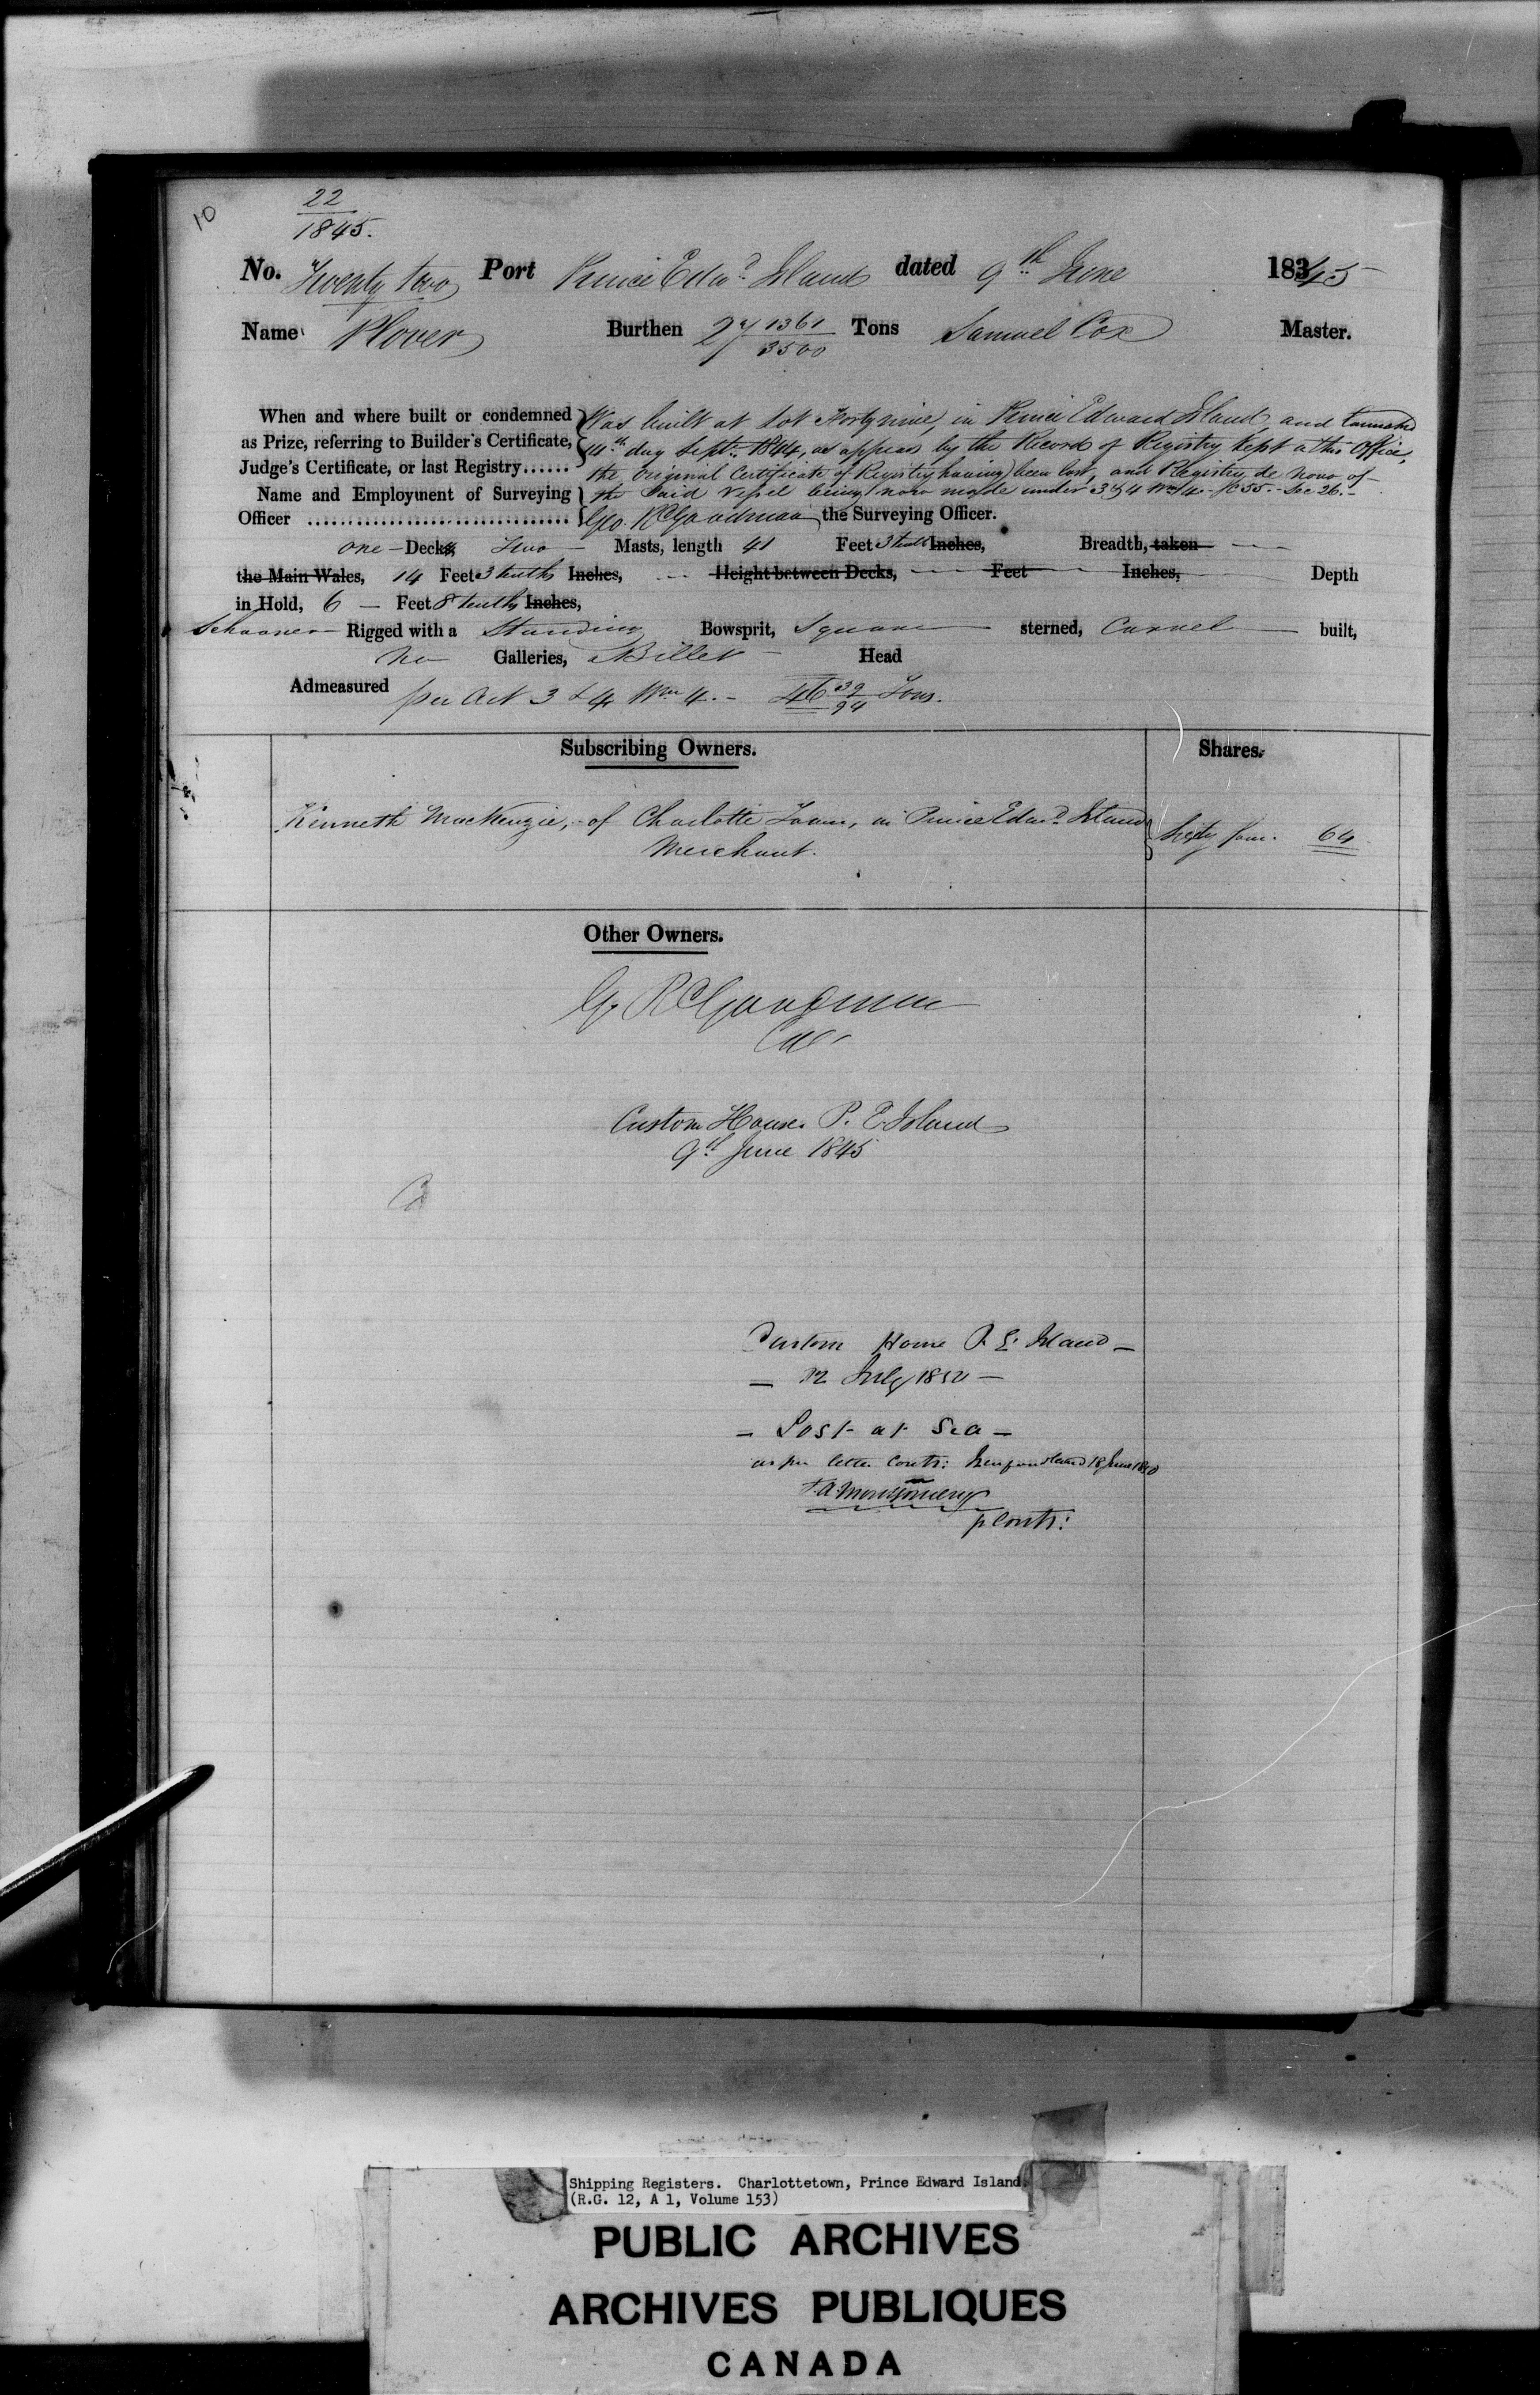 10
22
1845.
No. Twenty two Port Prince Edwd Island dated 9th June 18345
Name Plover Burthen 27 1361/3500 Tons Samuel Cox Master.
When and where built or condemned as Prize, referring to Builder's Certificate, Judge's Certificate, or last Registry......
Was built at Lot Forty nine, in Prince Edward Island and launched
14th day Septr. 1844, as appears by the Record of Registry kept at this Office,
the Original Certificate of Registry having been lost, and Registry de novo of
the said Vessel being now made under 3 & 4 Wm 4 - C 55 - Sec 26. -
Name and Employment of Surveying Officer ................................ Geo. R Goodman the Surveying Officer.
one - Decks, Two - Masts, length 41 Feet 3 tenths Inches, Breadth, taken
the Main Wales, 14 Feet 3 tenths Inches, Height between Decks, Feet Inches, Depth
in Hold, 6 - Feet 8 tenths Inches,
Schooner Rigged with a Standing Bowsprit, Square sterned, Carvel built,
no Galleries, Billet Head
Admeasured per Act 3 & 4 Wm 4. - 46 39/94 Tons.
Subscribing Owners. Shares.
Kenneth MacKenzie, of Charlotte Town, in Prince Edwd. Island Sixty four. 64
Merchant.
Other Owners.
G. R Goodman
Custom House P. E. Island
9th June 1845
Custom House P. E. Island -
July
- Lost at Sea -
as per letter Contr: Newfoundland 18 June
Montgomery
p Contr:
Shipping Registers. Charlottetown, Prince Edward Island.
(R.G. 12, A 1, Volume 153)
PUBLIC ARCHIVES
ARCHIVES PUBLIQUES
CANADA